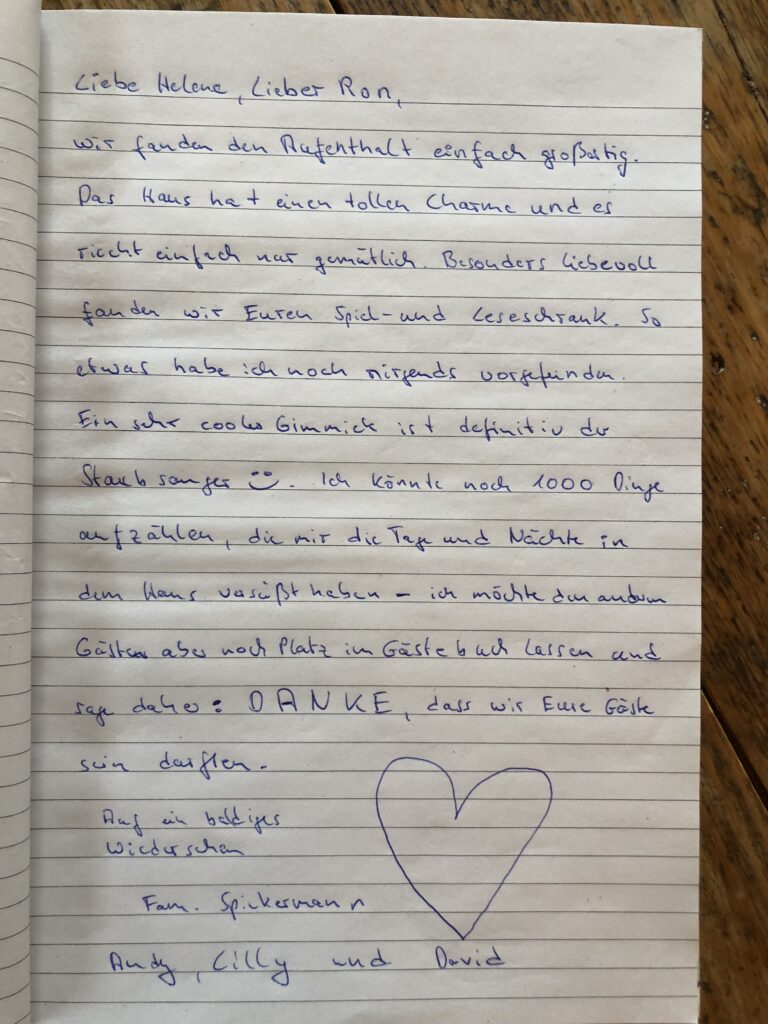 Liebe Helene, Lieber Ron,
wir fanden den Aufenthalt einfach großartig.
Das Haus hat einen tollen Charme und es
riecht einfach nur gemütlich. Besonders liebevoll
fanden wir Euren Spiel- und Leseschrank. So
etwas habe ich noch nirgends vorgefunden.
Ein sehr cooles Gimmick ist definitiv der
Staubsauger ☺. Ich könnte noch 1000 Dinge
aufzählen, die mir die Tage und Nächte in
dem Haus versüßt haben – ich möchte den anderen
Gästen aber noch Platz im Gästebuch lassen und
sage daher: DANKE, dass wir Eure Gäste
sein durften.
Auf ein baldiges
Wiedersehen
Fam. Spickermann
Andy, Lilly und David